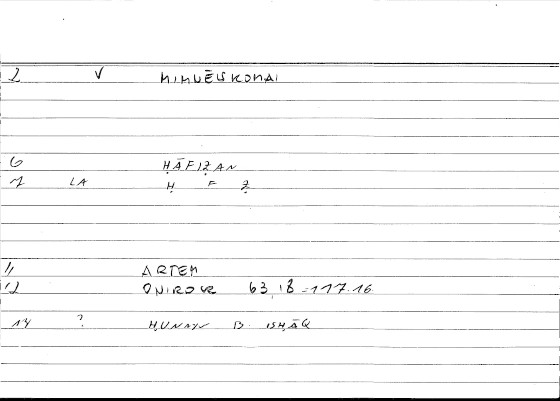 2 V ΜΙΜΝΗΣΚΟΜΑΙ
6 ḤĀFIẒAN
7 LA Ḥ F Ẓ
11 ARTEM
12 ONIROCR 63,18 = 117.16
14 ? ḤUNAYN B. ISḤĀQ